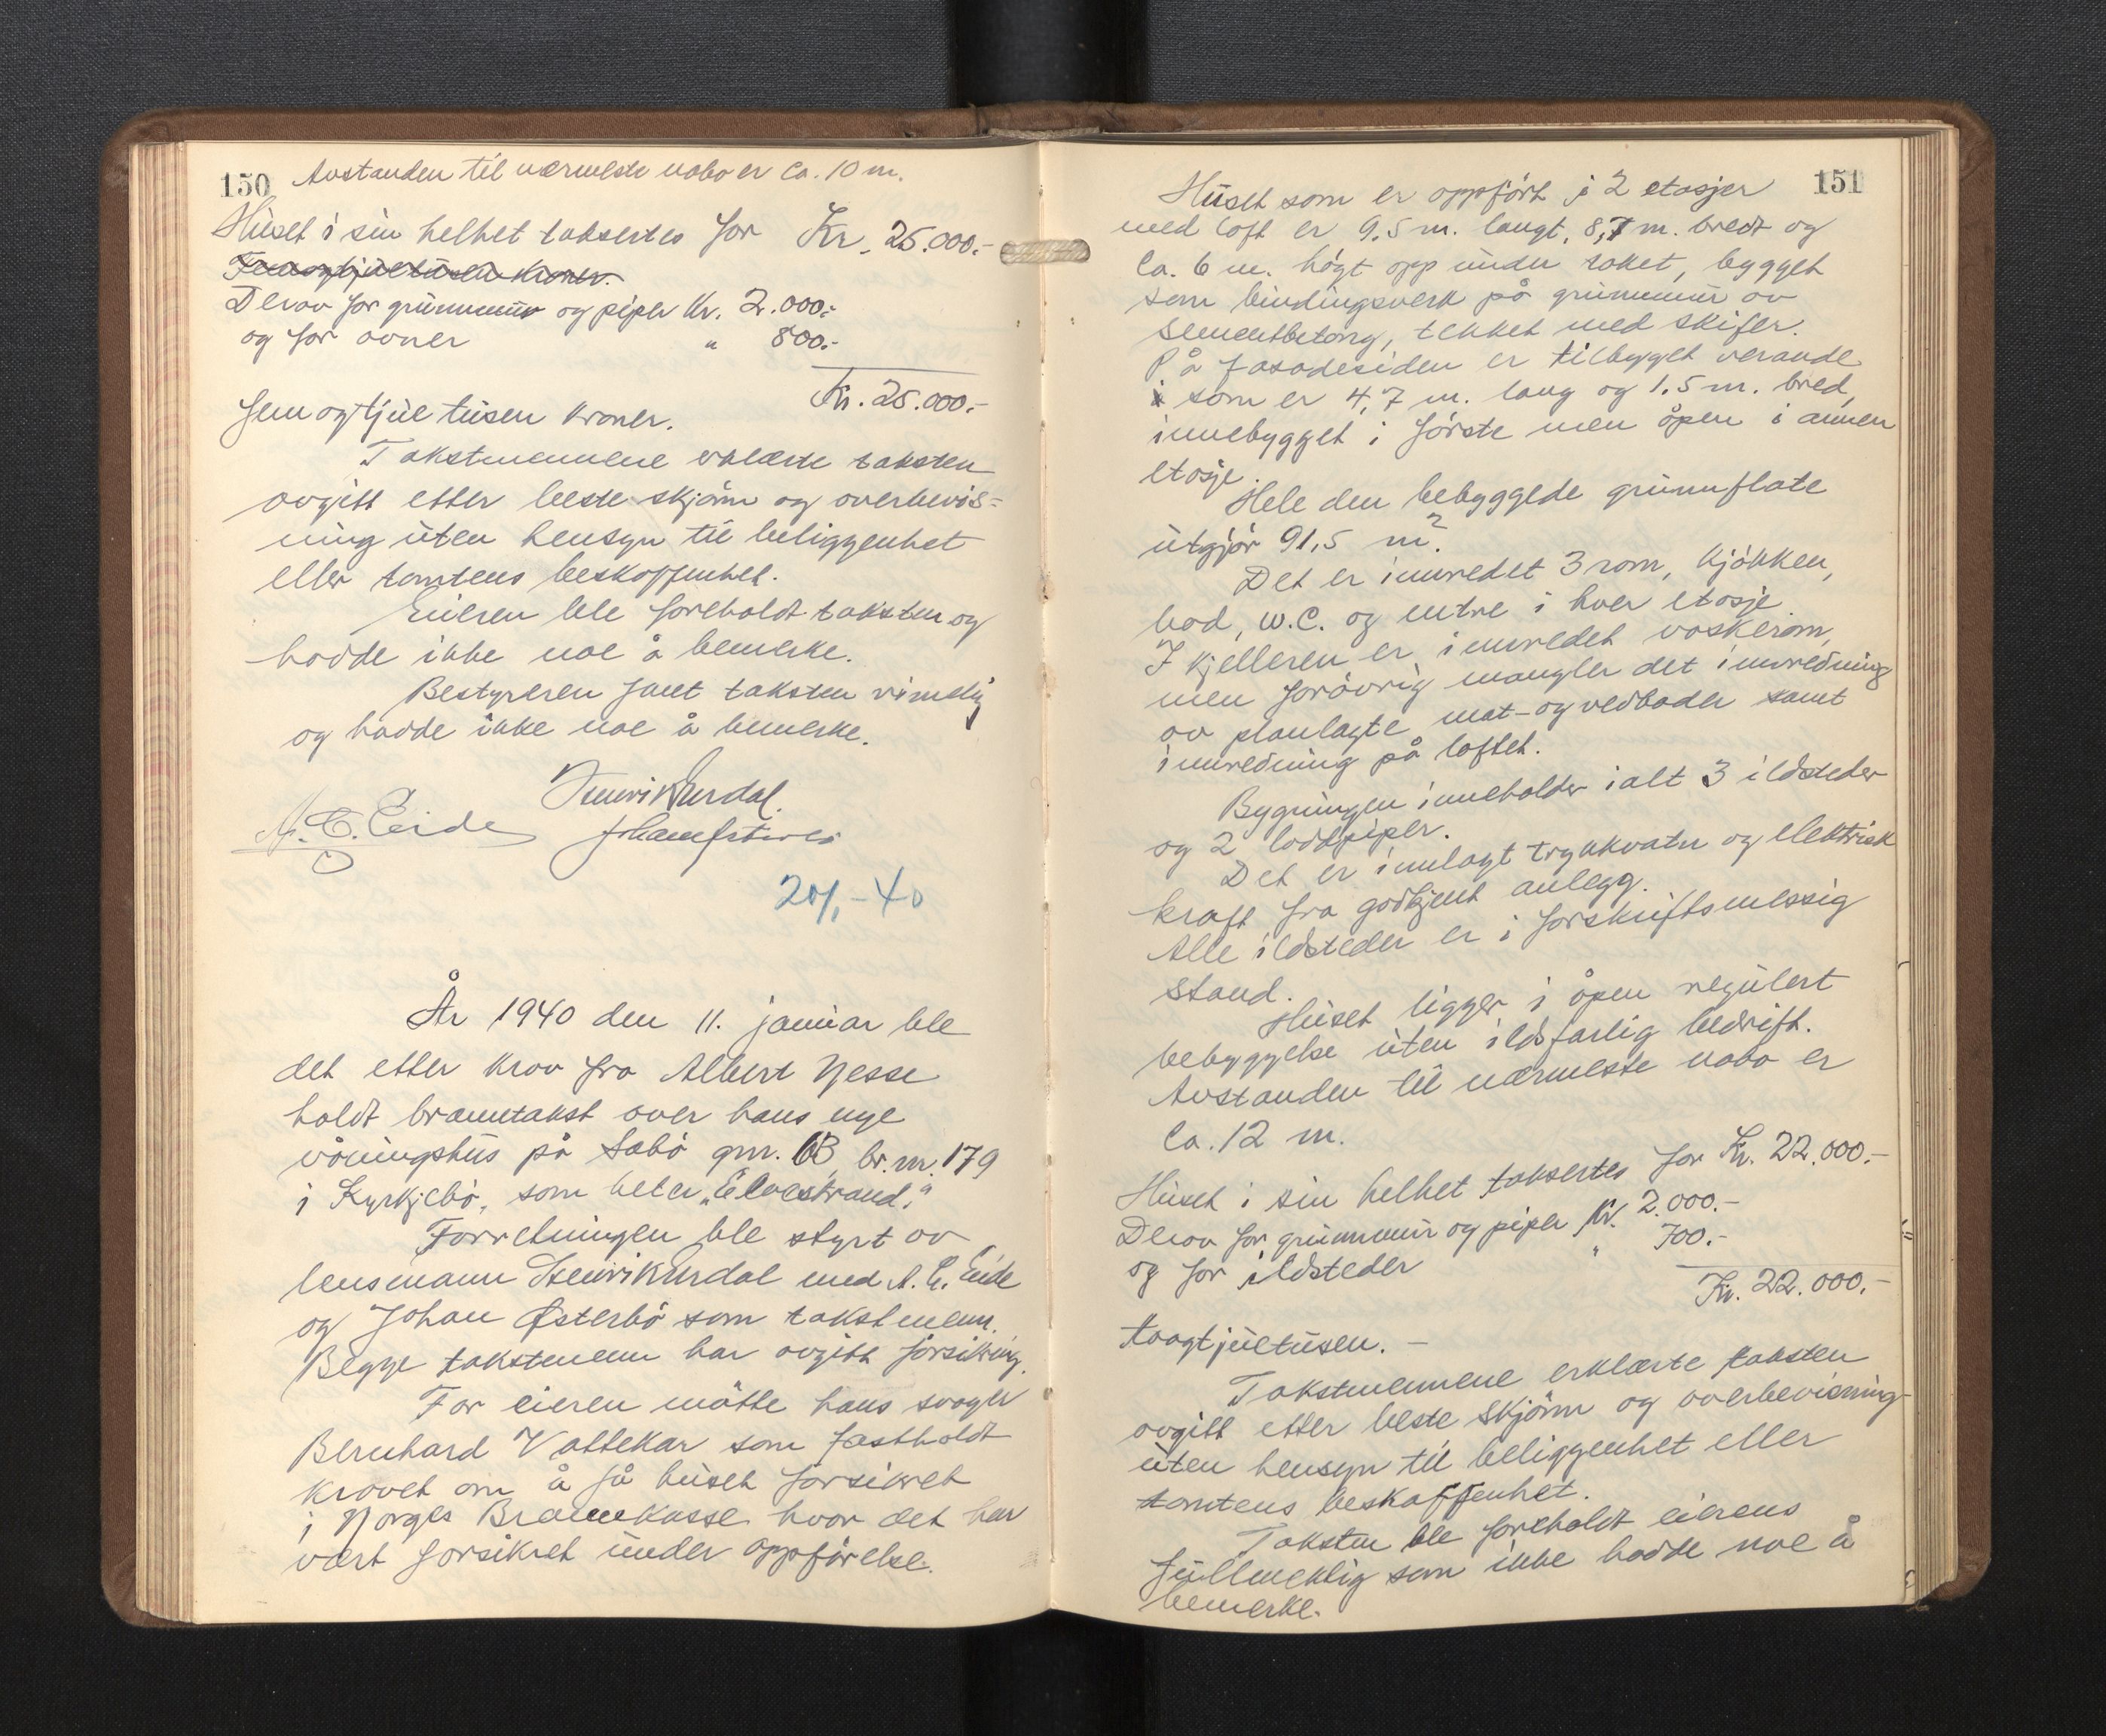 150
Avstanden til nærmeste nabo er ca. 10 m.
Huset i sin helhet takseres for Kr. 25.000.-
Femogtjuetusen kroner.
Derav for grunnmur og piper Kr. 2.000.-
og for ovner " 800.-
Kr. 25.000.-
femogtjue tusen kroner.
Takstmennene erklærte taksten
avgitt etter beste skjönn og overbevis-
ning uten hensyn til beliggenhet
eller tomtens beskaffenhet.
Eieren ble foreholdt taksten og
hadde ikke noe å bemerke.
Bestyreren fant taksten rimelig
og hadde ikke noe å bemerke.
Henrik Hurdal.
A. E. Eide
20/1-40
År 1940 den 11. januar ble
det etter krav fra Albert Nesse
holdt branntakst over hans nye
våningshus på Sabö gnr. 63, br.nr. 179
i Kyrkjebö, som heter „Elvestrand."
Forretningen ble styrt av
lensmann Henrik Hurdal med A. E. Eide
og Johan Østerbö som takstmenn.
Begge takstmenn har avgitt forsikring.
For eieren mötte hans svoger
Bernhard Vattekar som fastholdt
kravet om å få huset forsikret
i Norges Brannkasse hvor det har
vært forsikret under oppförelse.
151
Huset som er oppfört i 2 etasjer
med loft er 9.5 m. langt, 8,7 m. bredt og
ca. 6 m. högt opp under taket, bygget
som bindingsverk på grunnmur av
sementbetong, tekket med skifer.
På fasadesiden er tilbygget verande
som er 4,7 m. lang og 1.5 m. bred,
innebygget i förste men åpen i annen
etasje.
Hele den bebyggede grunnflate
utgjör 91,5 m².
Det er innredet 3 rom, kjökken,
bad, w.c. og entre i hver etasje.
I kjelleren er innredet vaskerom,
men forövrig mangler det innredning
av planlagte mat- og vedboder samt
innredning på loftet.
Bygningen inneholder ialt 3 ildsteder
og 2 loddpiper.
Det er innlagt trykkvatn og elektrisk
kraft fra godkjent anlegg.
Alle ildsteder er i forskriftsmessig
stand.
Huset ligger i åpen regulert
bebyggelse uten ildsfarlig bedrift.
Avstanden til nærmeste nabo er
ca. 12 m.
Huset i sin helhet takseres for Kr. 22.000.-
Derav for grunnmur og piper Kr. 2.000.-
og for ildsteder " 700.-
Kr. 22.000.-
toogtjuetusen. -
Takstmennene erklærte taksten
avgitt etter beste skjönn og overbevisning
uten hensyn til beliggenhet eller
tomtens beskaffenhet.
Taksten ble foreholdt eierens
fullmektig som ikke hadde noe å
bemerke.